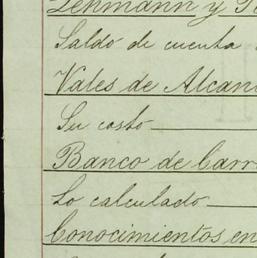 Lehmann y
Saldo de cuenta
Vales de Alcan
Su costo
Banco de Carr
Lo calculado
Conocimientos en